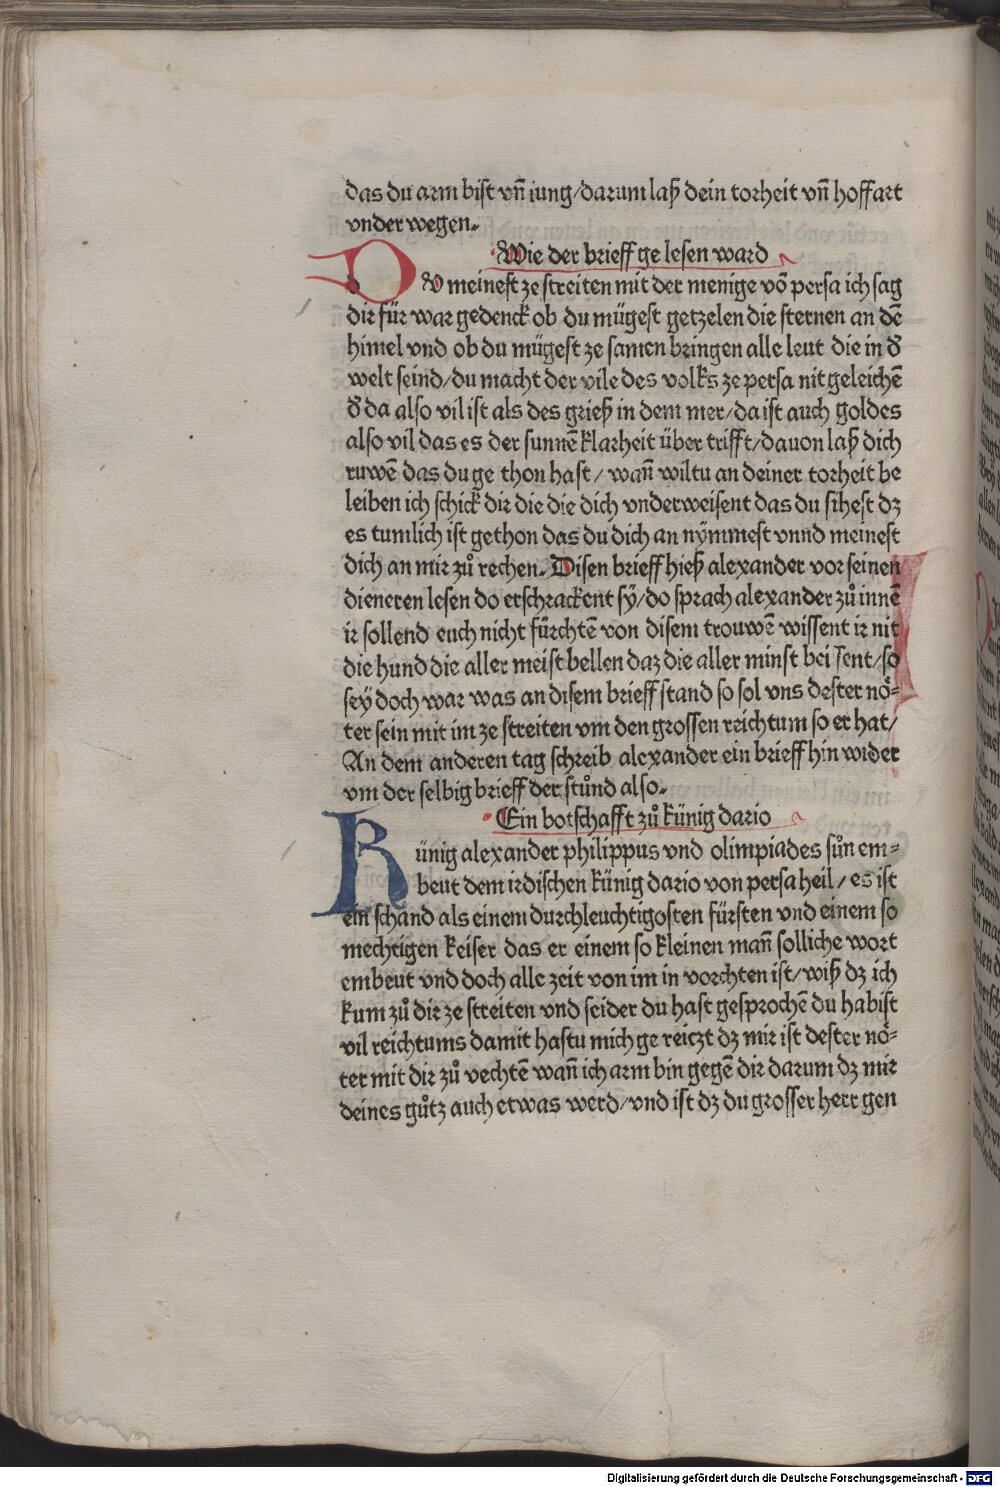 das du arm bist vn̄ iung/darum laß dein torheit vn̄ hoffart
vnder wegen.
Wie der brieff ge lesen ward
DV meinest ze streiten mit der menige vō persa ich sag
dir für war gedenck ob du mügest getzelen die sternen an dē
himel vnd ob du mügest ze samen bringen alle leut die in d̕
welt seind/du macht der vile des volks ze persa nit geleichē
d̕ da also vil ist als des grieß in dem mer/da ist auch goldes
also vil das es der sunnē klarheit über trifft/dauon laß dich
ruwē das du ge thon hast/ wan̄ wiltu an deiner torheit be
leiben ich schick dir die die dich vnderweisent das du sihest dz
es tumlich ist gethon das du dich an nÿmmest vnnd meinest
dich an mir zů rechen. Disen brieff hieß alexander vor seinen
dieneren lesen do erschrackent sÿ/do sprach alexander zů innē
ir sollend euch nicht fürchtē von disem trouwē wissent ir nit
die hund die aller meist bellen daz die aller minst beissent/so
seÿ doch war was an disem brieff stand so sol vns dester nö⸗
ter sein mit im ze streiten vm den grossen reichtum so er hat/
An dem anderen tag schreib alexander ein brieff hin wider
vm der selbig brieff der stůnd also.
Ein botschafft zů künig dario
Künig alexander philippus vnd olimpiades sůn em⸗
beut dem irdischen künig dario von persa heil/ es ist
ein schand als einem durchleuchtigosten fürsten vnd einem so
mechtigen keiser das er einem so kleinen man̄ solliche wort
embeut vnd doch alle zeit von im in vorchten ist/wiß dz ich
kum zů dir ze streiten vnd seider du hast gesprochē du habist
vil reichtums damit hastu mich ge reiczt dz mir ist dester nö⸗
ter mit dir zů vechtē wan̄ ich arm bin gegē dir darum dz mir
deines gůtz auch etwas werd/vnd ist dz du grosser herr gen
Digitalisierung gefördert durch die Deutsche Forschungsgemeinschaft - DFG